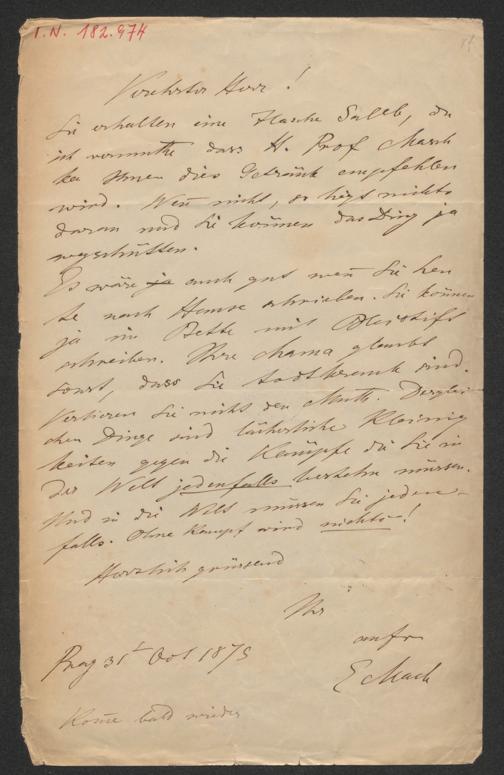 I.N. 182.974
Verehrter Herr!
Sie erhalten eine Flasche Salleb, da
ich vermuthe dass H. Prof
Ihnen dies Getränk empfehlen
wird. Weñ nicht, so liegt nichts
daran und Sie können das Ding ja
wegschütten.
Es wäre ja auch gut weñ Sie heu
te nach Hause schrieben. Sie können
ja im Bette mit Bleistift
schreiben. Ihre Mama glaubt
sonst, dass Sie todtkrank sind.
Verlieren Sie nicht den Muth. Derglei
chen Dinge sind lächerliche Kleinig
keiten gegen die Kämpfe die Sie in
der Welt jedenfalls bestehn müssen.
Und in die Welt müssen Sie jeden-
falls. Ohne Kampf wird nichts!
Herzlich grüssend
Ihr
aufr
E Mach
Prag 31t Oct 1875
Kom̃e bald wieder